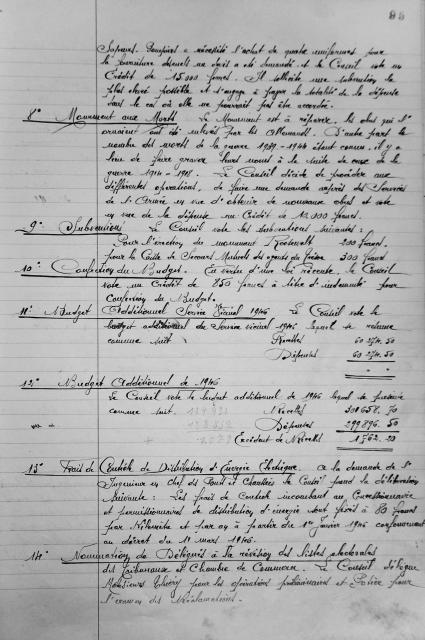 98
Sapeurs Pompiers a nécessité l'achat de quatre uniformes pour
la fourniture desquels un devis a été demandé et le Conseil vote un
Crédit de 15 000 francs. Il sollicite une subvention la
plus élevée possible et s'engage à payer la totalité de la dépense
dans le cas où elle ne pourrait pas être accordée.
8° Monument aux Morts Le Monument est à réparer, les obus qui l'
ornaient ont été enlevés par les Allemands. D'autre part le
nombre des morts de la guerre 1939-1944 étant connu, il y a
lieu de faire graver leurs noms à la suite de ceux de la
guerre 1914-1918. Le Conseil décide de procéder aux
différentes opérations, de faire une demande auprès des Services
de l'Armée en vue d'obtenir de nouveaux obus et vote
en vue de la dépense un Crédit de 12.000 francs.
9° Subventions Le Conseil vote les subventions suivantes :
Pour l'érection du monument Roosevelt 200 francs.
pour la Caisse de Secours Mutuels des agents du 300 francs
10° Confection du Budget. En vertu d'une loi récente, le Conseil
vote un Crédit de 850 francs à titre d'indemnité pour
Confection du Budget.
11° Budget Additionnel Service Vicinal 1946 Le Conseil vote le
budget additionnel du Service vicinal 1946 lequel se résume
comme suit : Recettes 60 274. 50
Dépenses 60 274. 50
12° Budget Additionnel de 1946
Le Conseil vote le budget additionnel de 1946 lequel se présente
comme suit. Recettes 301 658. 70
Dépenses 299 896. 50
Excédent de Recettes 1 762. 20
13° Frais de Contrôle de Distribution d'Energie Electrique. A la demande de l'
Ingénieur en Chef des Ponts et Chaussées le Conseil prend la délibération
suivante : Les frais de Contrôle incombant au Concessionnaire
et permissionnaires de distribution d'énergie sont fixés à 80 francs
par Kilomètre et par an à partir du 1er janvier 1946 conformément
au décret du 11 mars 1946.
14° Nomination de Délégués à la révision des listes électorales
des Tribunaux et Chambre de Commerce. Le Conseil délègue
Messieurs pour les opérations préliminaires et pour
l'examen des Réclamations.